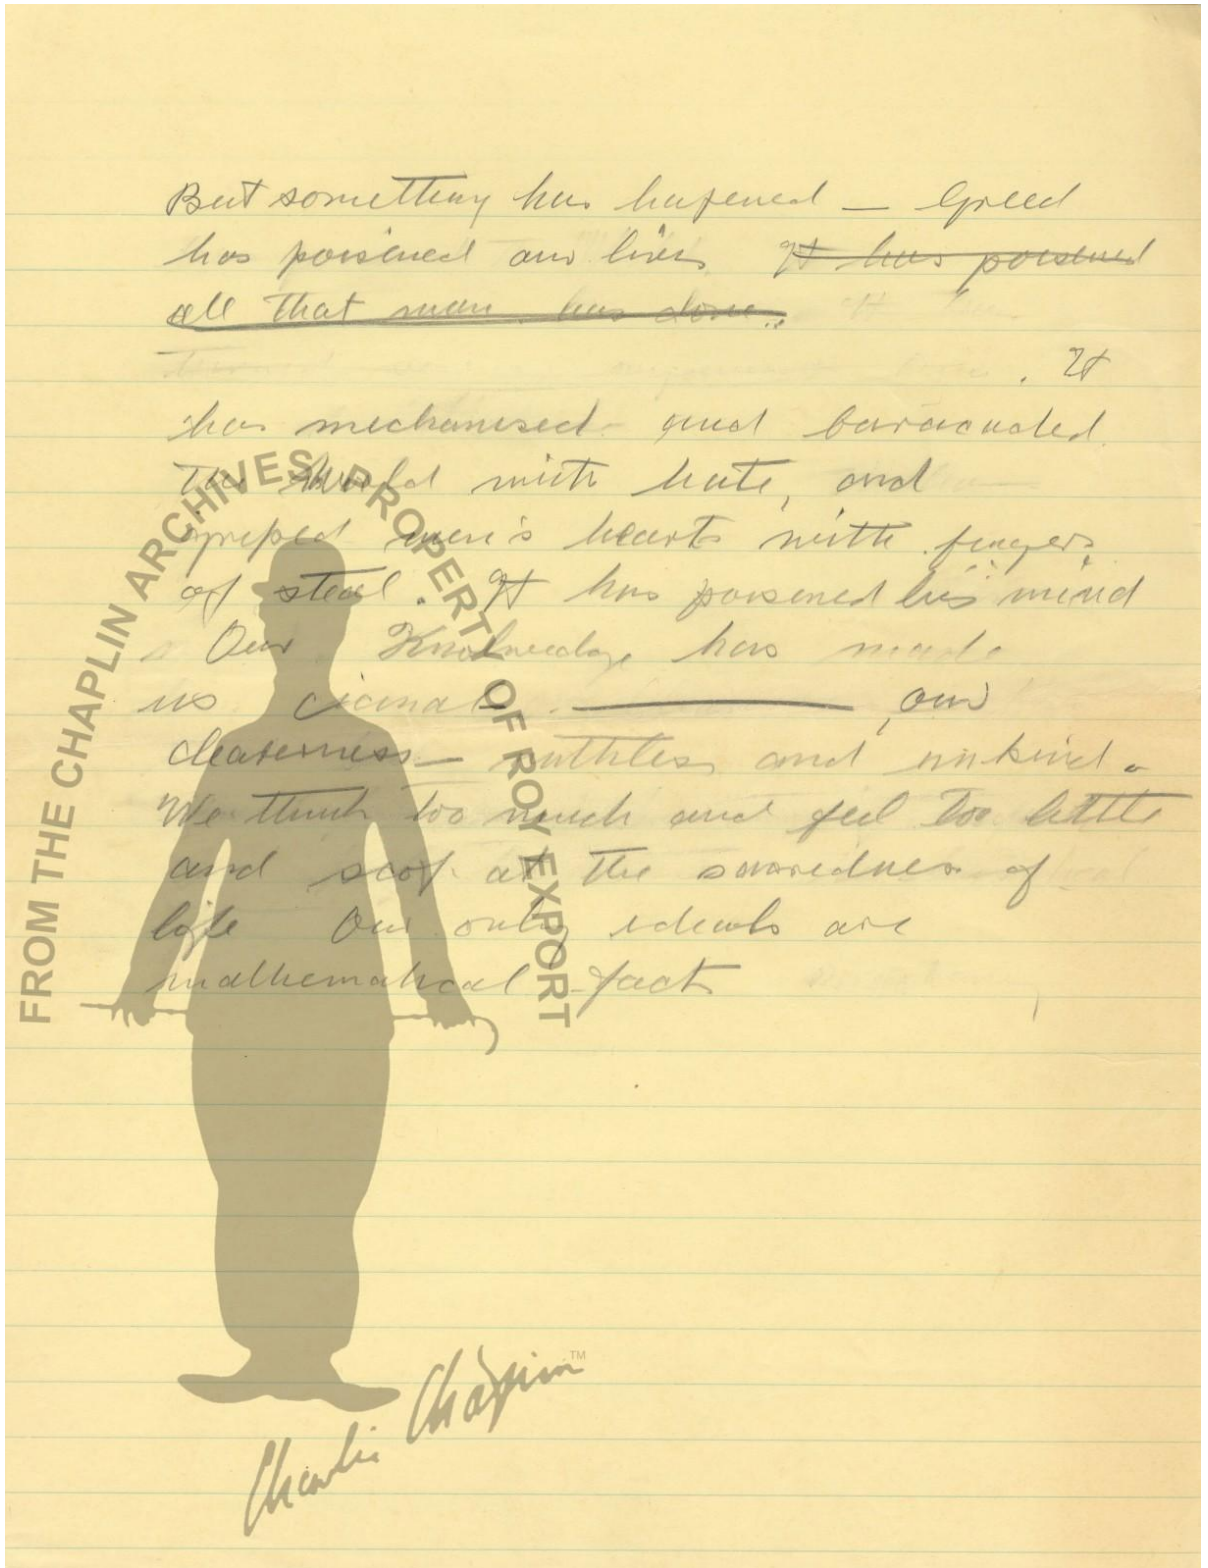 But something has hapened — Greed
has poisened our lives It has poisened
all that man has done..
. It
has mechanised and baracaded
the world with hate, and
gripped men's hearts with fingers
of steal. It has poisened his mind
Our Knolwedge has made
us cianal ——— , our
cleaverness — ruthless and unkind.
We think too much and feel too little
and scof at the sacredness of
life Our only ideals are
mathematical fact
FROM THE CHAPLIN ARCHIVES, PROPERTY OF ROY EXPORT
Charlie Chaplin™